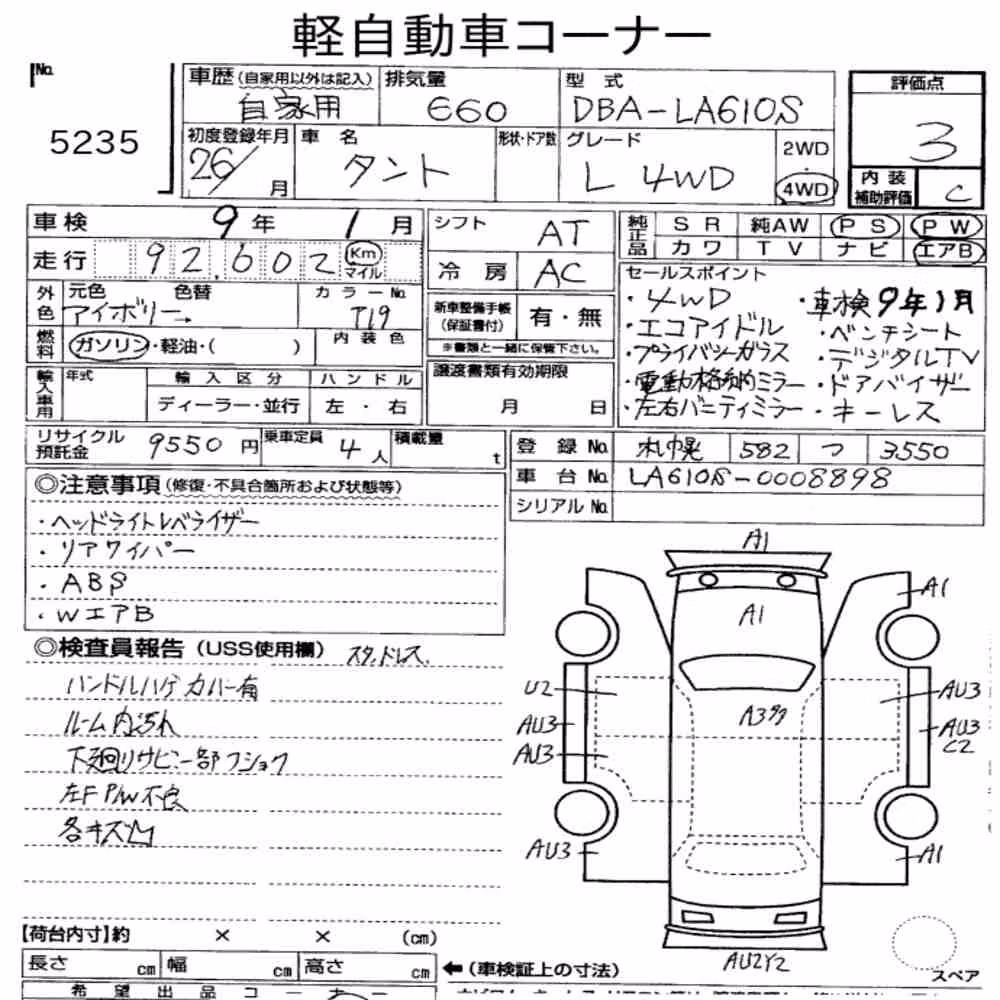 軽自動車コーナー
No. 5235
車歴(自家用以外は記入) 自家用
排気量 660
型式 DBA-LA610S
評価点 3
初度登録年月 26/ 月
車名 タント
形状・ドア数
グレード L 4WD
2WD ・ 4WD
内装補助評価 C
車検 9年 1月
走行 92,602 Km マイル
シフト AT
冷房 AC
純正品 SR 純AW PS PW
カワ TV ナビ エアB
外色 元色 アイボリー 色替 カラーNo. T19
燃料 ガソリン・軽油・( ) 内装色
新車整備手帳(保証書付) 有・無
※書類と一緒に保管下さい。
輸入車用 年式 輸入区分 ハンドル
ディーラー・並行 左・右
譲渡書類有効期限
月 日
セールスポイント
・4WD ・車検9年1月
・エコアイドル ・ベンチシート
・プライバシーガラス ・デジタルTV
・電動格納ミラー ・ドアバイザー
・左右バニティミラー ・キーレス
リサイクル預託金 9550円 乗車定員 4人 積載量 t
登録No. 札幌 582 つ 3550
車台No. LA610S-0008898
シリアルNo.
◎注意事項(修復・不具合箇所および状態等)
・ヘッドライトレベライザー
・リアワイパー
・ABS
・WエアB
◎検査員報告(USS使用欄) スタッドレス.
ハンドルハゲ カバー有
ルーム内汚れ
下廻りサビ一部フショク
左F P/W不良
各キズ凹
A1
A1
A1
U2
AU3
AU3
A3多
AU3
AU3
C2
AU3
A1
AU2Y2
スペア
【荷台内寸】約 × × (cm)
長さ cm 幅 cm 高さ cm
←(車検証上の寸法)
希望出品コーナー